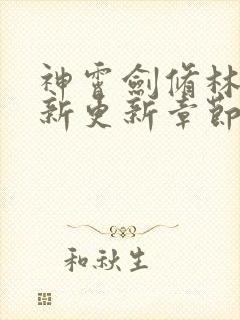 神霄劍脩林
新更新章節
和秋生